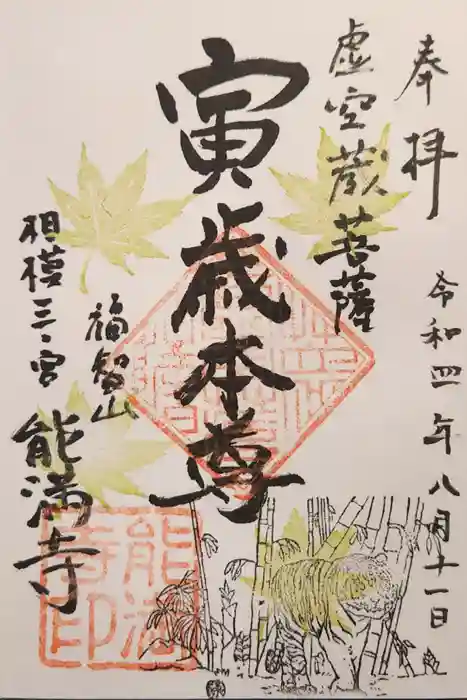 奉拝
令和四年八月十一日
虚空蔵菩薩
寅歳本尊
相模三ノ宮
福智山
能満寺
能満
寺印